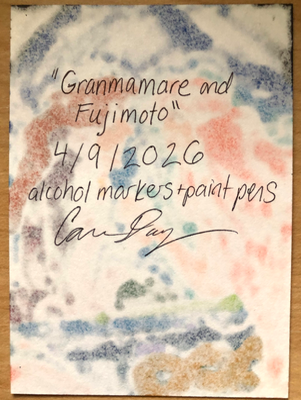 "Granmamare and
Fujimoto"
4/9/2026
alcohol markers + paint pens